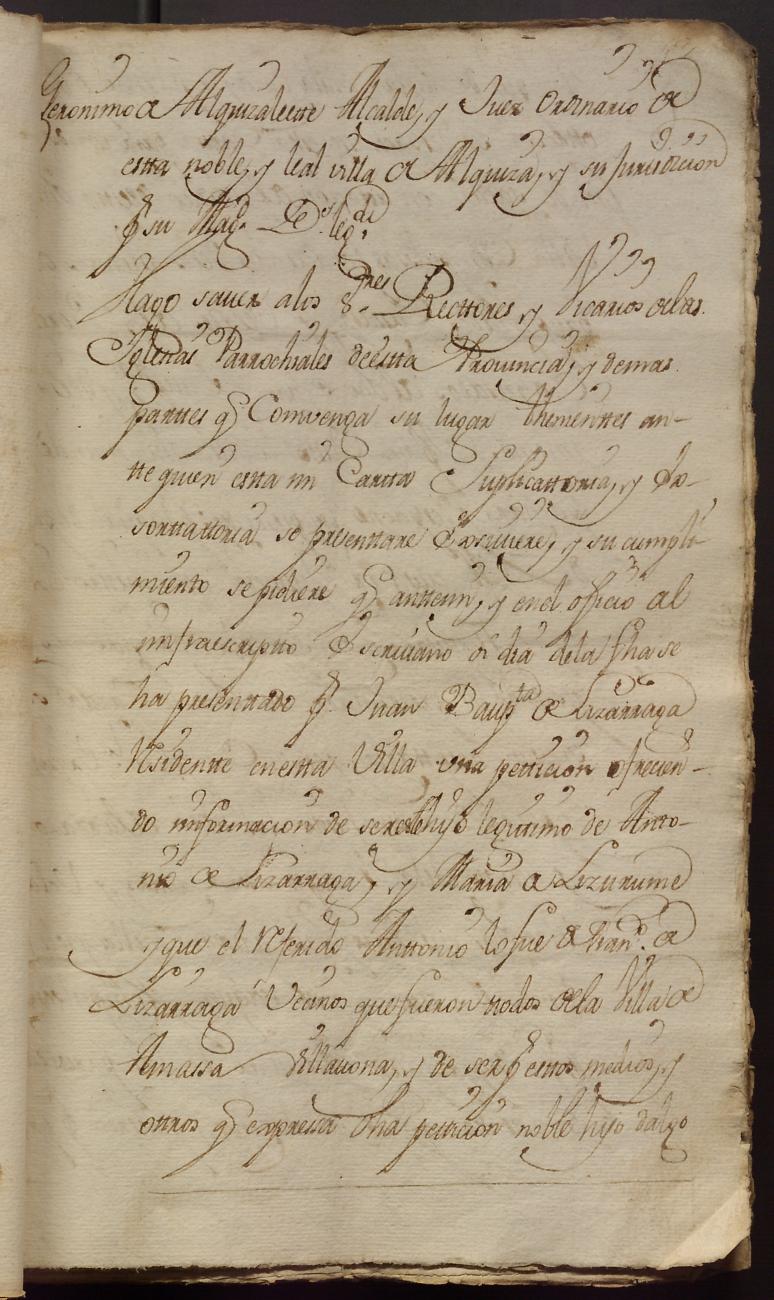 Geronimo de Alquizalette Alcalde, y Juez ordinario de
esta noble, y leal villa de Alquiza, y su Jurisdicion
p.r su Mag.d
Hago saver a los S.res Recttores, y Vicarios de las
Iglesias Parrochiales de estta Provincia, y demas
parttes q.e Comvenga su lugar thenienttes an-
tte quien estta mi Cartta Suplicattoria, y Ex-
sortattoria se presenttare Exsiviere, y su cumpli-
miento se pidiere q.e antte mi, y en el officio del
imfraescriptto Escrivano oi dia de la fha se
ha presenttado p.r Juan Baup.ta de Lizarraga
Residentte en estta Villa una petticion ofrecien-
do imformacion de ser el hijo legitimo de Antto-
nio de Lizarraga, y Maria de Lizurume
y que el Referido Anttonio lo fue de Fran.co de
Lizarraga Vecinos que fueron ttodos de la Villa de
Amassa Villavona, y de ser p.r esttos medios, y
ottros q.e expressa dha petticion noble hijo dalgo